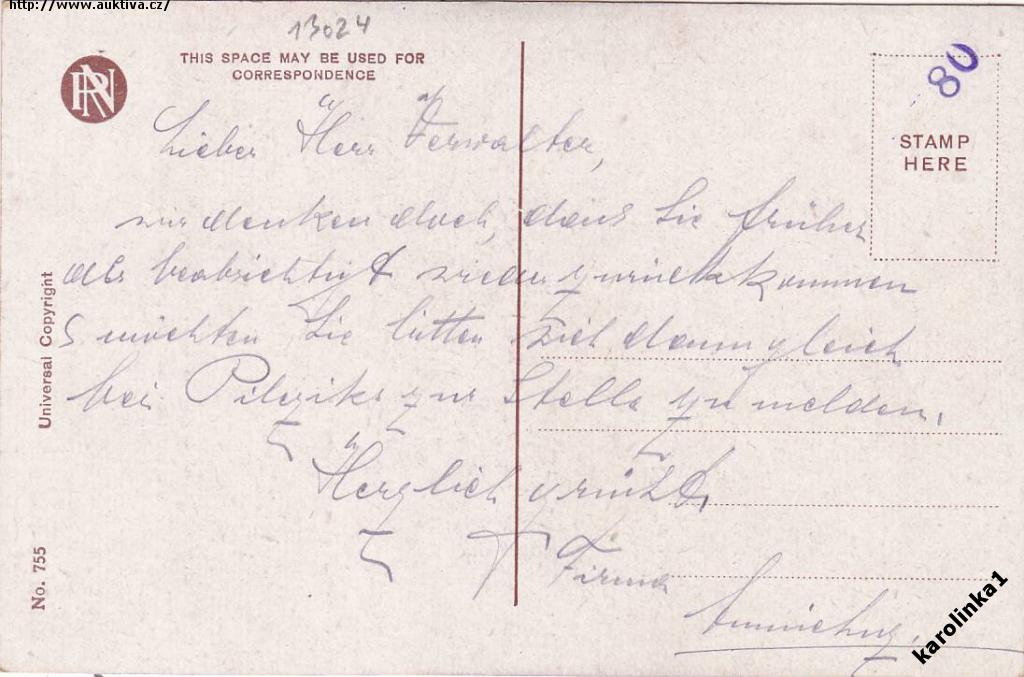 http://www.auktiva.cz/
13024
RN
THIS SPACE MAY BE USED FOR
CORRESPONDENCE
80
STAMP
HERE
Lieber Herr Verwalter,
wir denken doch, dass Sie früher
als beabsichtigt wieder zurückkommen
& möchten Sie bitten sich dann gleich
bei zur Stelle zu melden.
Herzlich grüßt
Firma
Universal Copyright
No. 755
karolinka1